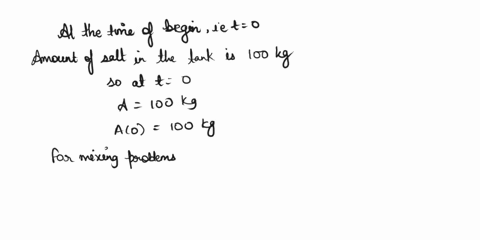 At the time of begin, i.e t=0
Amount of salt in the tank is 100 kg
so at t= 0
A = 100 kg
A(0) = 100 kg
For mixing problems